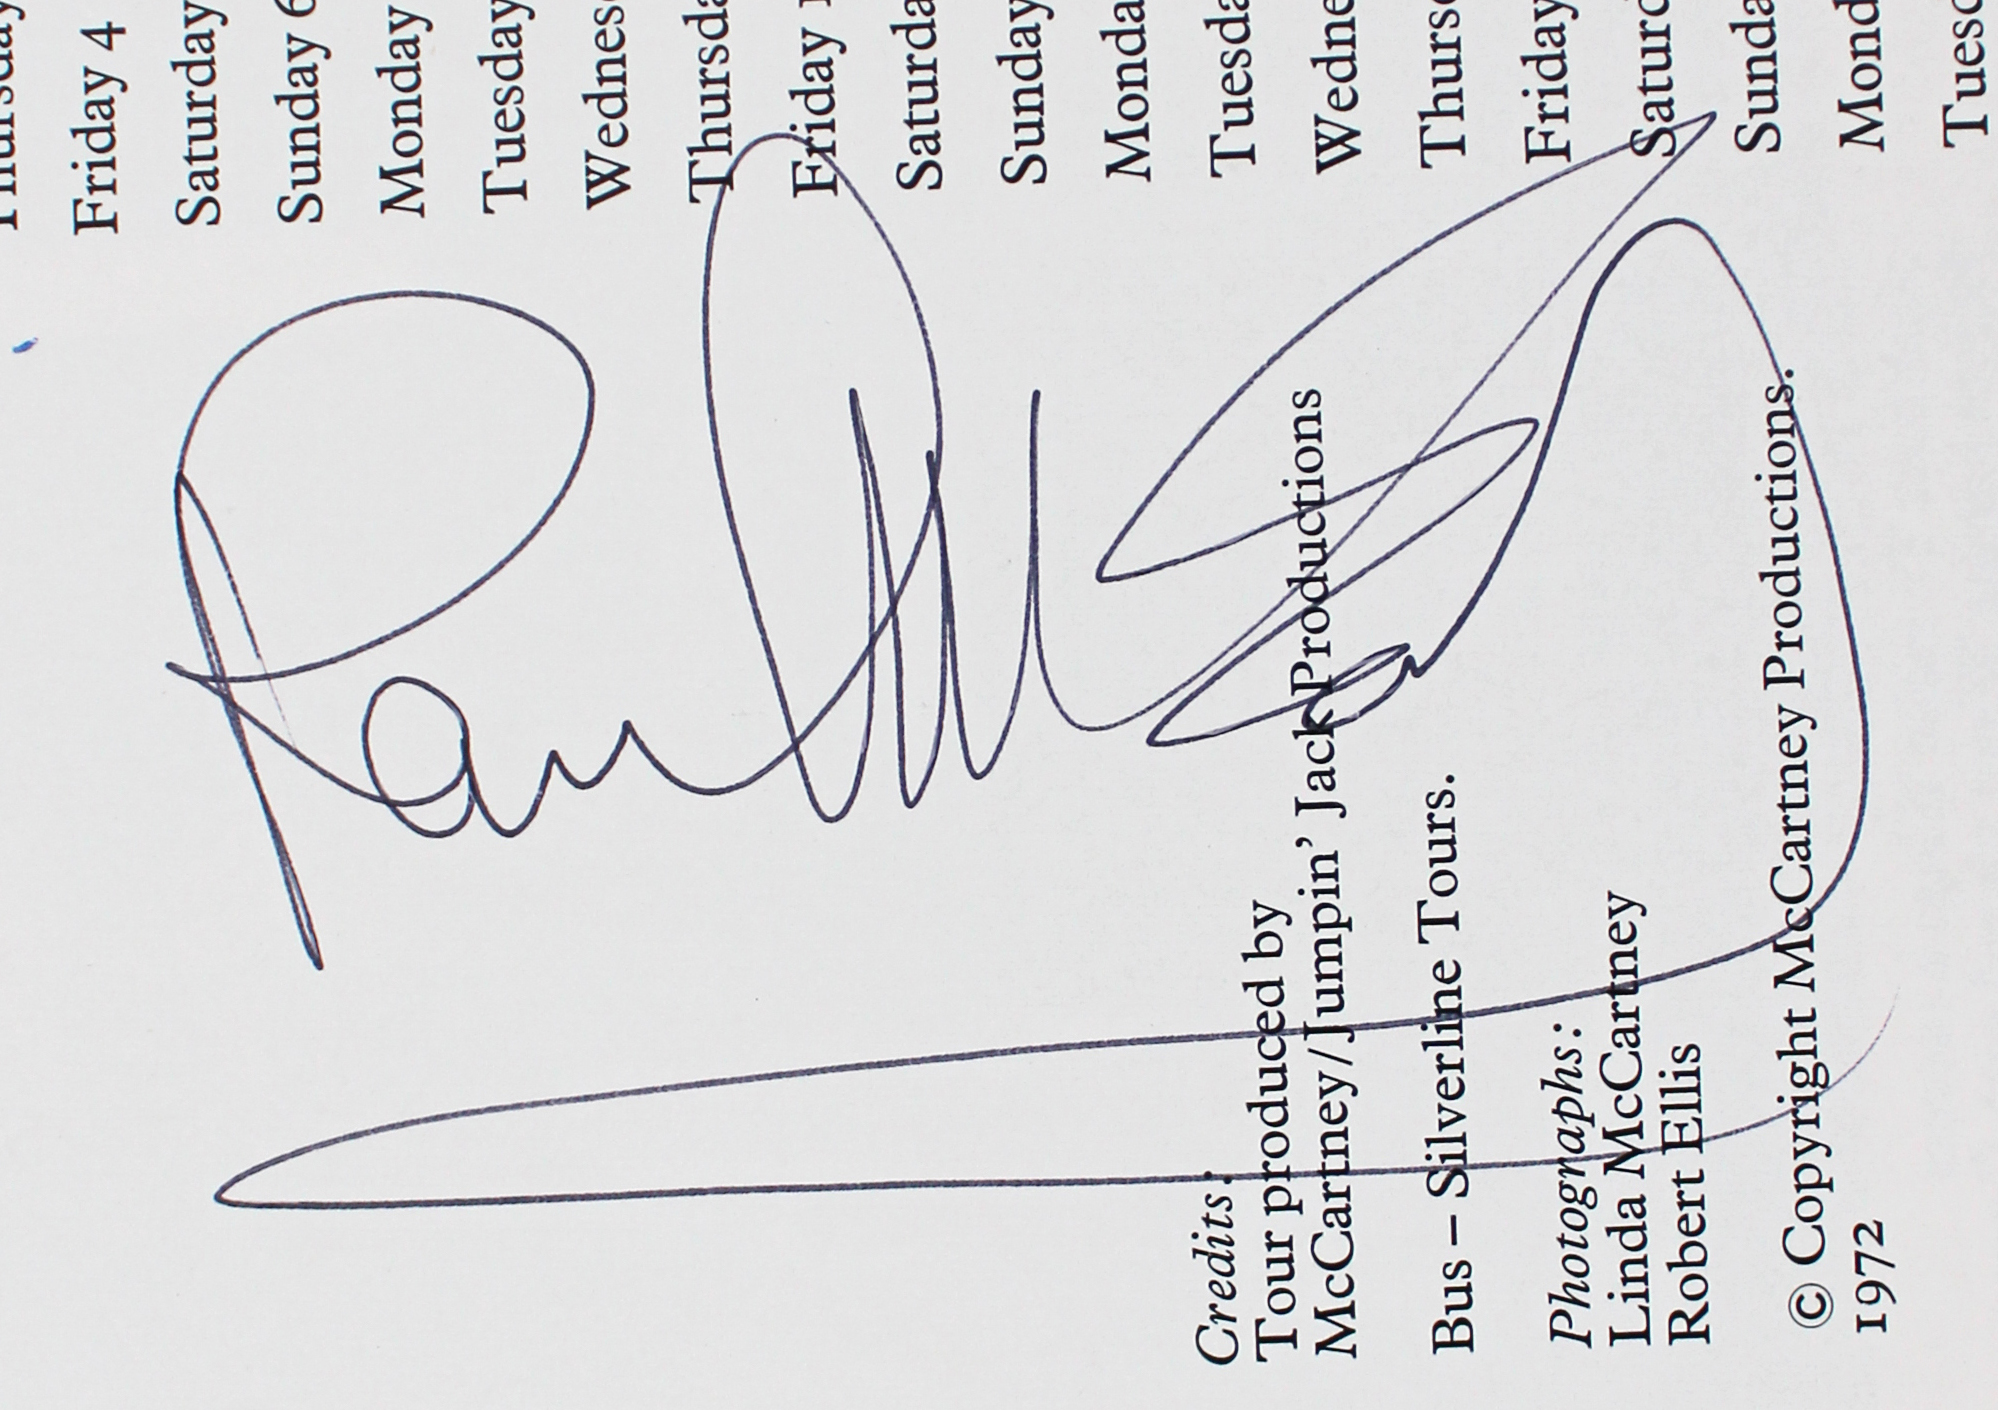 Thursday
Friday 4
Saturday
Sunday 6
Monday
Tuesday
Wednes
Thursda
Friday 1
Saturda
Sunday
Monda
Tuesda
Wedne
Thurs
Friday
Saturd
Sunda
Mond
Tues
Paul McCartney
Credits:
Tour produced by
McCartney/Jumpin' Jack Productions
Bus – Silverline Tours.
Photographs:
Linda McCartney
Robert Ellis
© Copyright McCartney Productions.
1972